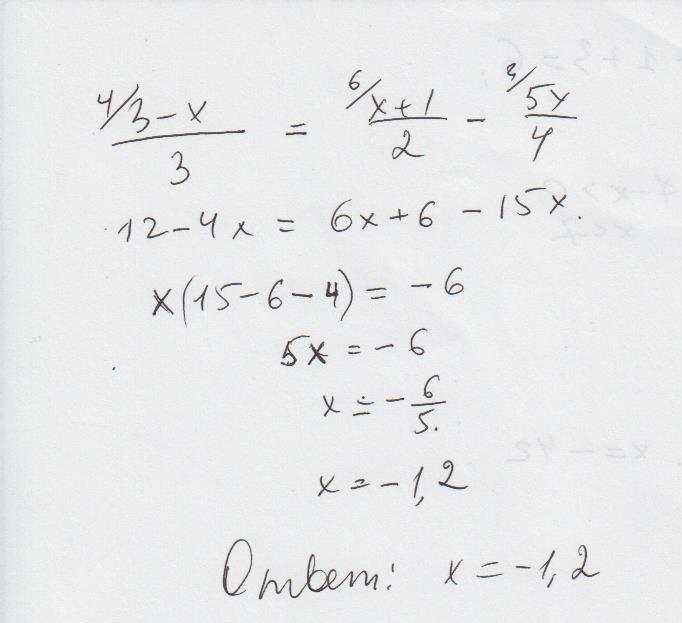 ⁴/3-x / 3 = ⁶/x+1 / 2 - ³/5x / 4
12-4x = 6x+6 - 15x.
x(15-6-4) = -6
5x = -6
x = -6/5.
x = -1,2
Ответ: x = -1,2